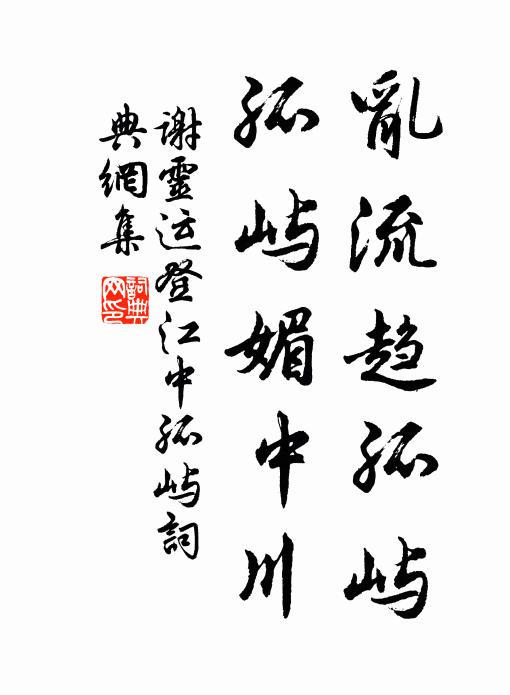 亂流趋孤屿
孤屿媚中川
謝靈运登江中孤屿詞
典網集
詞典网印